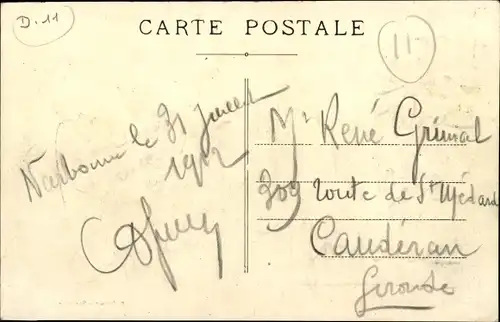 D. 11
CARTE POSTALE
11
Narbonne le 31 Juillet
1912
Mr René Grimal
309 route de St Médard
Caudéran
Gironde